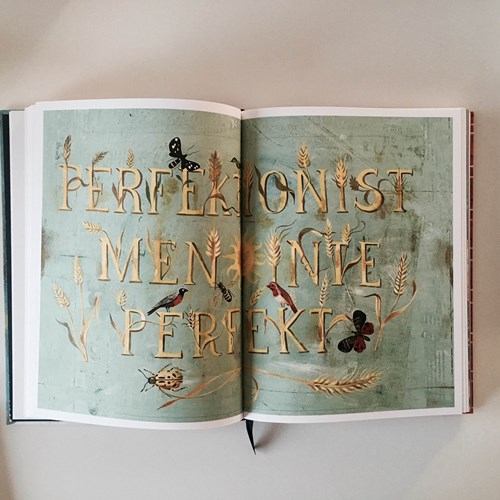 PERFEKTIONIST
MEN INTE
PERFEKT